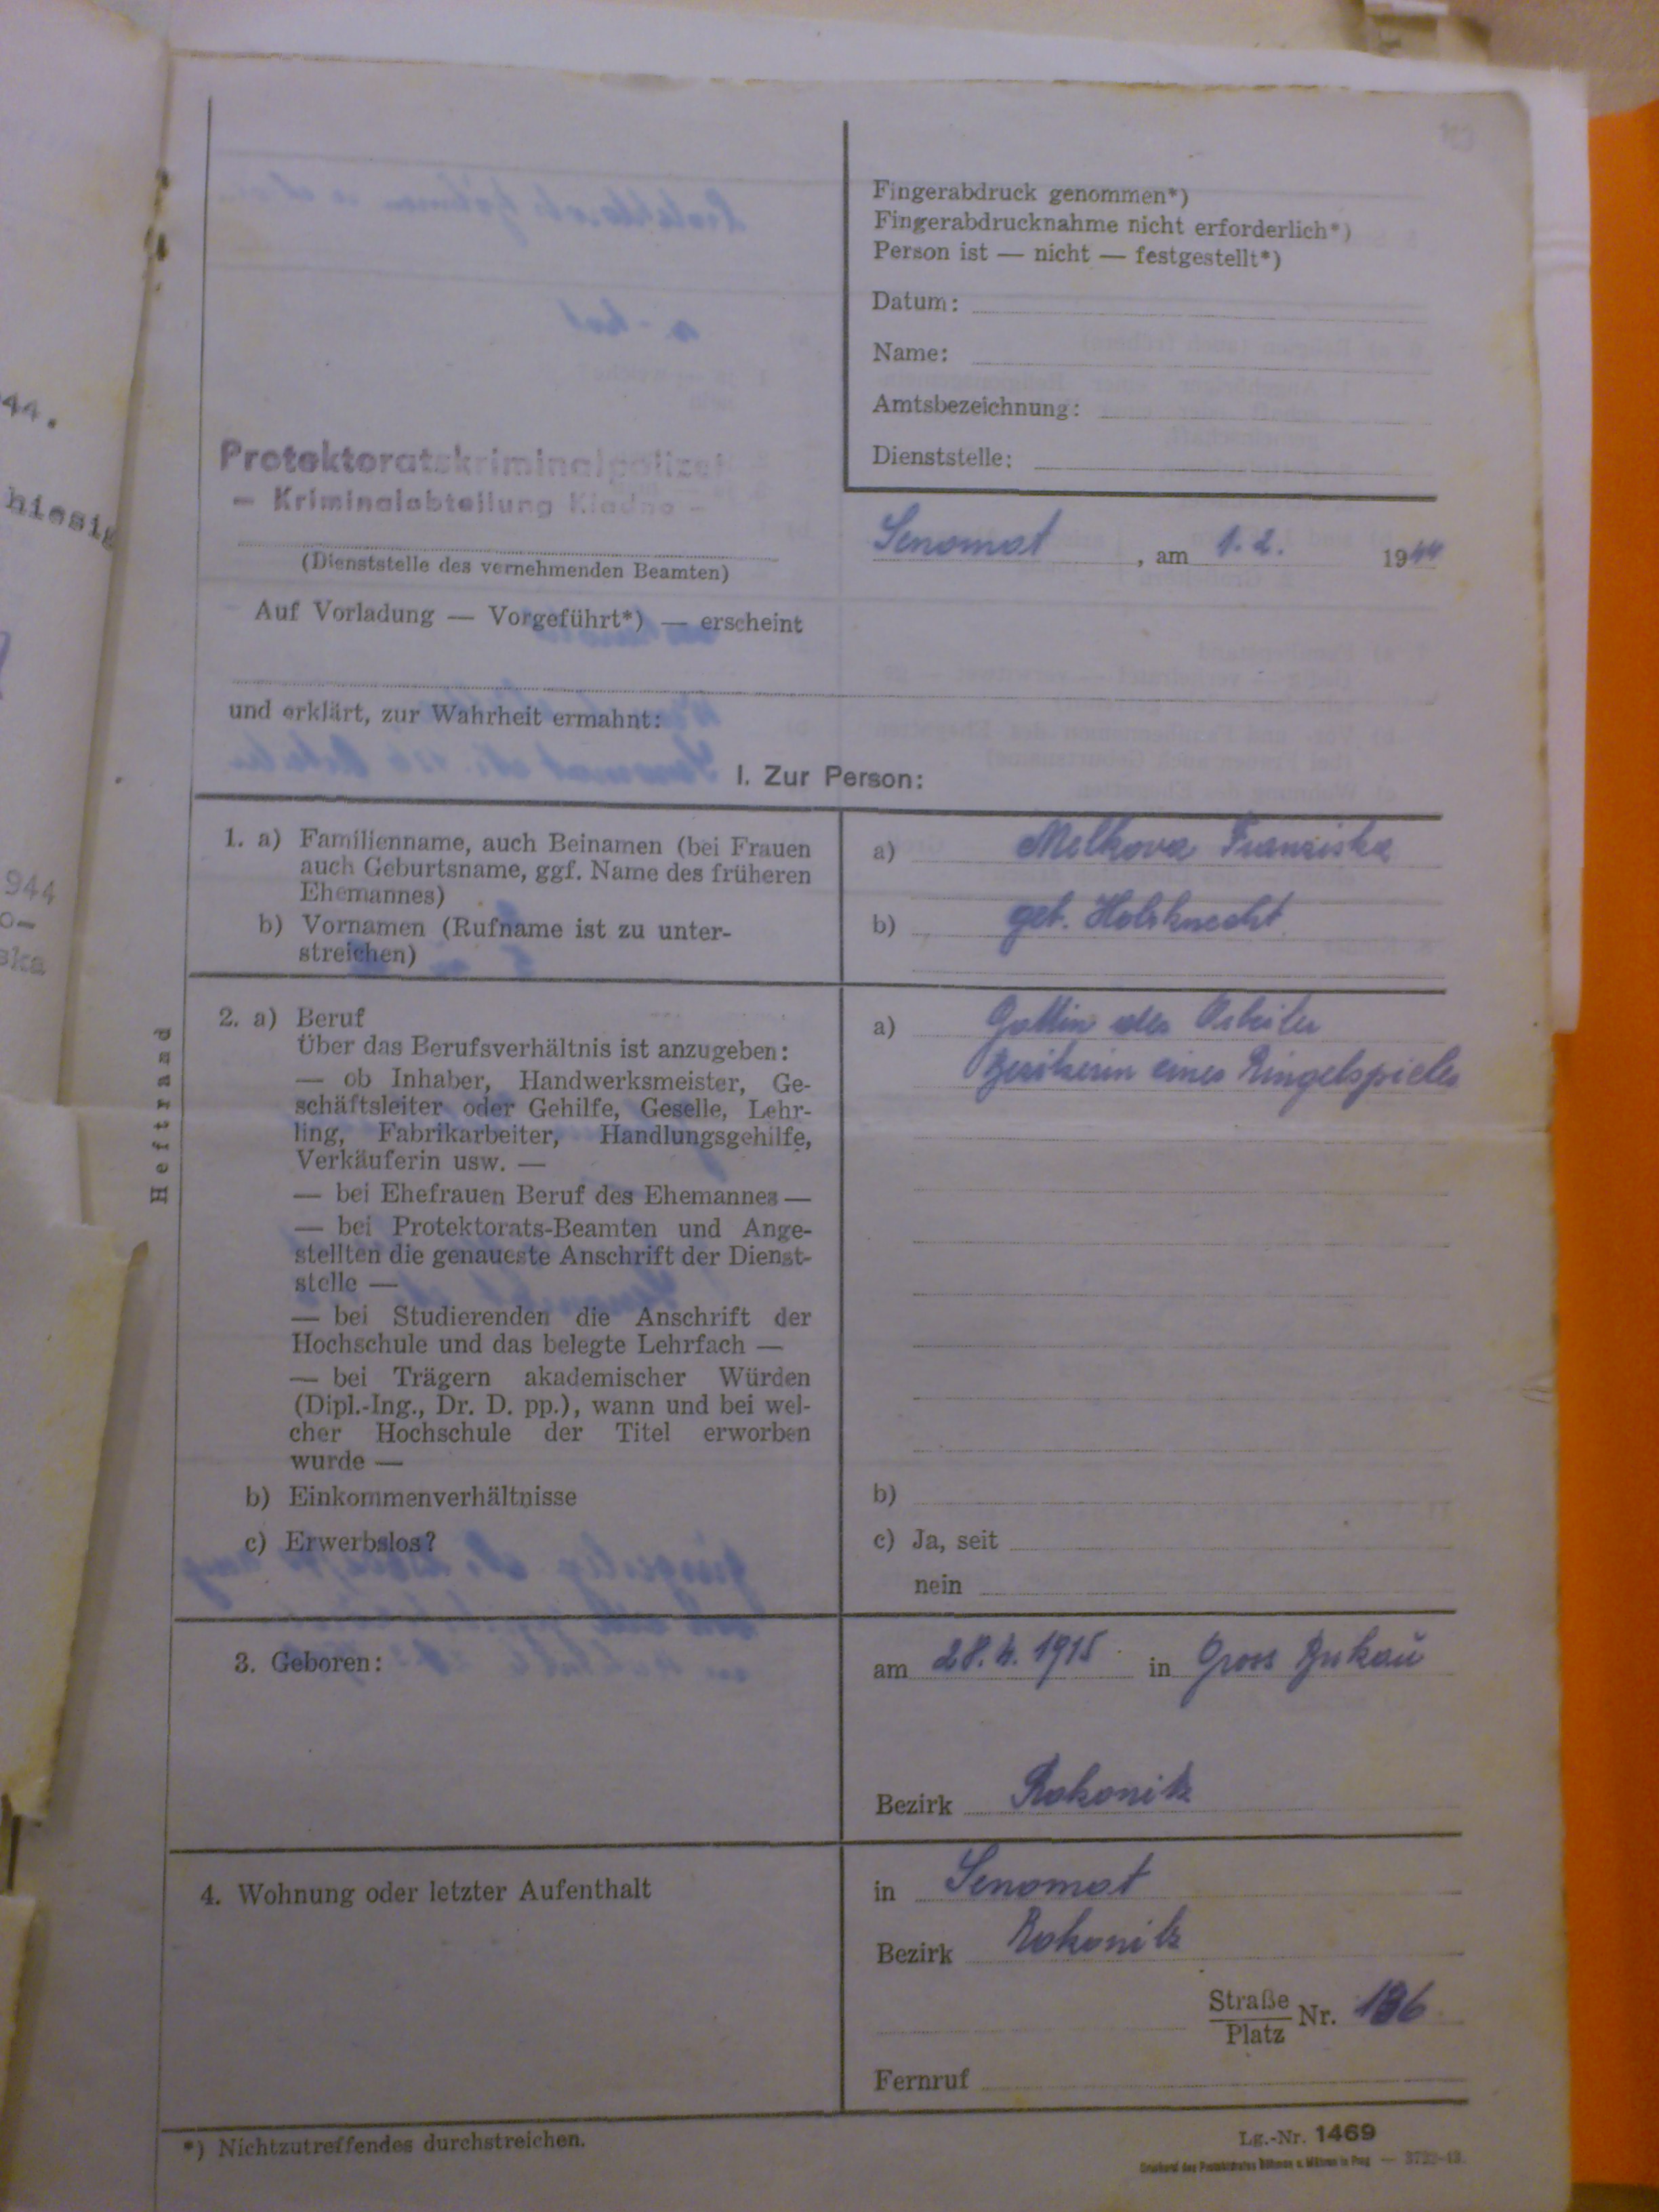 44.
hiesig
944
o-
ska
Heftrand
Fingerabdruck genommen*)
Fingerabdrucknahme nicht erforderlich*)
Person ist — nicht — festgestellt*)
Datum:
Name:
Amtsbezeichnung:
Dienststelle:
Protektoratskriminalpolizei
— Kriminalabteilung Kladno —
(Dienststelle des vernehmenden Beamten)
Senomat, am 1. 2. 1944
Auf Vorladung — Vorgeführt*) — erscheint
und erklärt, zur Wahrheit ermahnt:
I. Zur Person:
1. a) Familienname, auch Beinamen (bei Frauen
auch Geburtsname, ggf. Name des früheren
Ehemannes)
b) Vornamen (Rufname ist zu unter-
streichen)
a) Melkova Franziska
b) geb. Holzknecht
2. a) Beruf
Über das Berufsverhältnis ist anzugeben:
— ob Inhaber, Handwerksmeister, Ge-
schäftsleiter oder Gehilfe, Geselle, Lehr-
ling, Fabrikarbeiter, Handlungsgehilfe,
Verkäuferin usw. —
— bei Ehefrauen Beruf des Ehemannes —
— bei Protektorats-Beamten und Ange-
stellten die genaueste Anschrift der Dienst-
stelle —
— bei Studierenden die Anschrift der
Hochschule und das belegte Lehrfach —
— bei Trägern akademischer Würden
(Dipl.-Ing., Dr. D. pp.), wann und bei wel-
cher Hochschule der Titel erworben
wurde —
b) Einkommenverhältnisse
c) Erwerbslos?
a) Gattin des Arbeiter
Besitzerin eines Ringelspieles
b)
c) Ja, seit
nein
3. Geboren:
am 28. 4. 1915 in Gross Bukau
Bezirk Rakonitz
4. Wohnung oder letzter Aufenthalt
in Senomat
Bezirk Rakonitz
Straße
Platz Nr. 136
Fernruf
*) Nichtzutreffendes durchstreichen.
Lg.-Nr. 1469
Druckerei des Protektorates Böhmen u. Mähren in Prag — 3722-43.